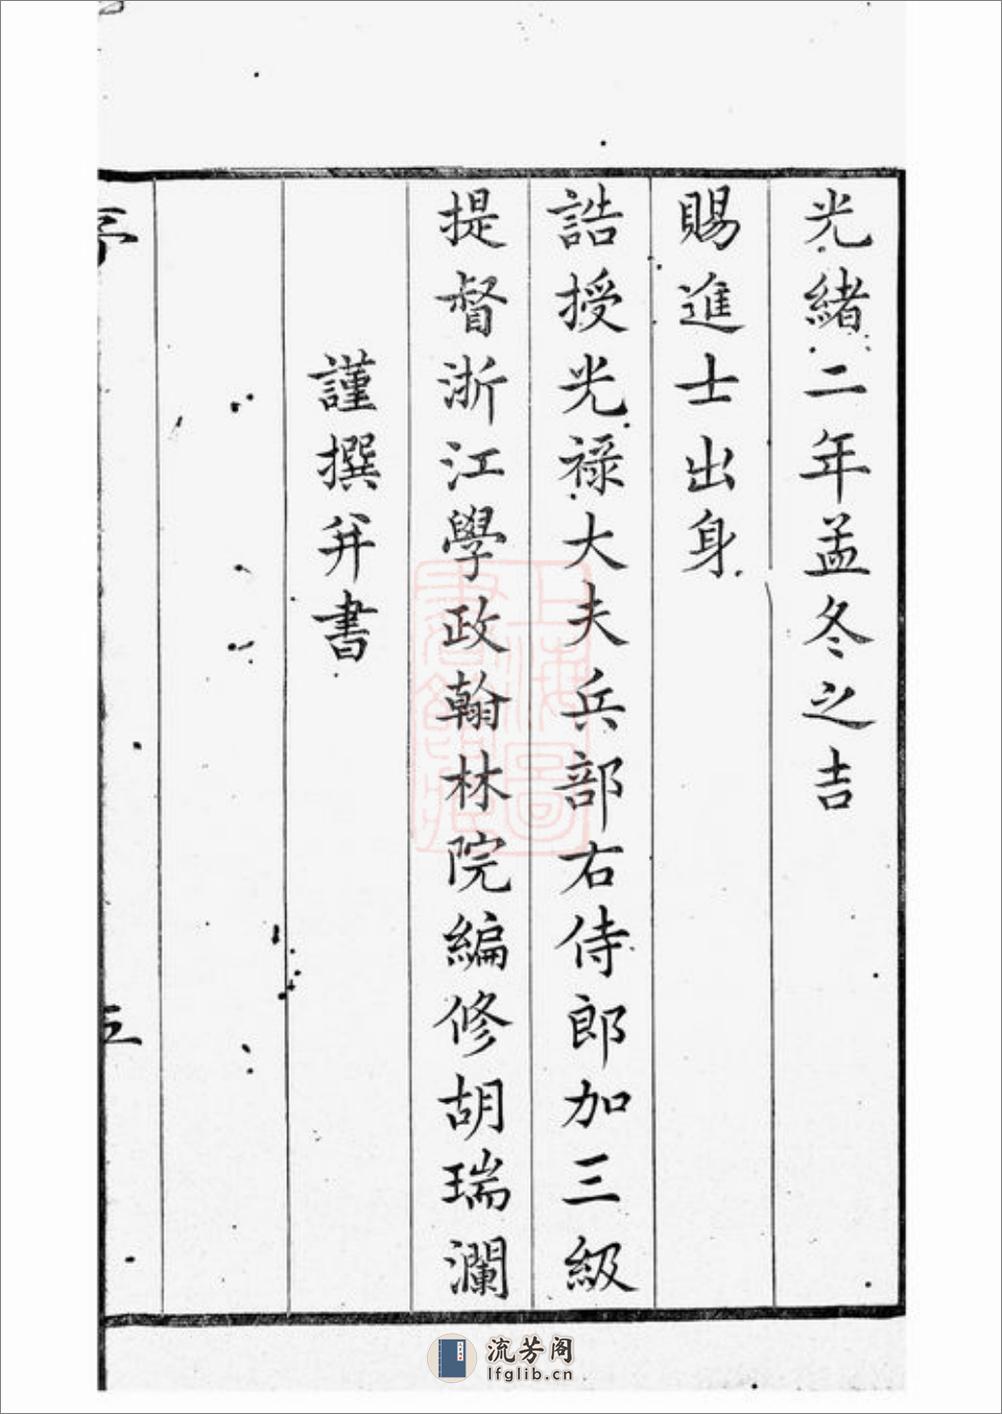 光緒二年孟冬之吉
賜進士出身
誥授光祿大夫兵部右侍郎加三級
提督浙江學政翰林院編修胡瑞瀾
謹撰并書
序
五
上海圖書館藏
流芳阁
lfglib.cn